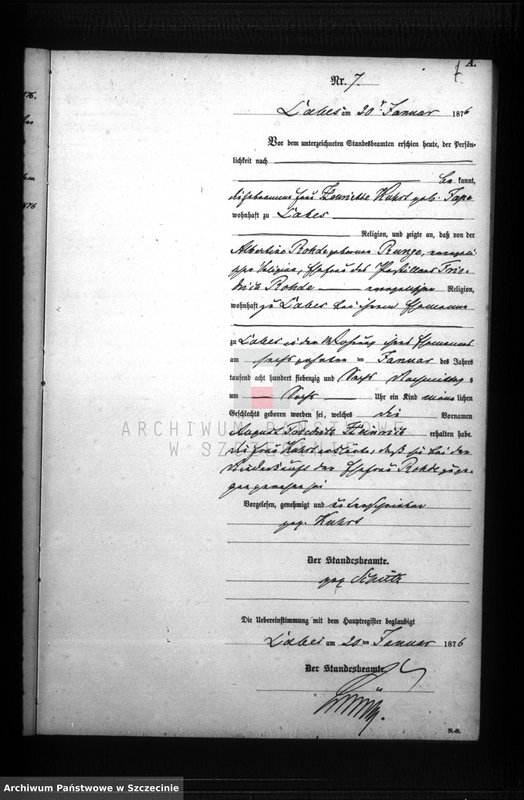 A.
7
Nr. 7.
Labes am 20ten Januar 1876
Vor dem unterzeichneten Standesbeamten erschien heute, der Persön-
lichkeit nach
be kannt,
die Hebamme Frau Henriette Kuhrt geb.
wohnhaft zu Labes
Religion, und zeigte an, daß von der
Albertine Rohde geborene Runge, evangeli-
scher Religion, Ehefrau des Postillons Frie-
drich Rohde evangelischer Religion,
wohnhaft zu Labes bei ihrem Ehemanne
zu Labes in der Wohnung ihres Ehemannes
am sechszehnten ten Januar des Jahres
tausend acht hundert siebenzig und Sechs Nachmittags
um Sechs Uhr ein Kind männlichen
Geschlechts geboren worden sei, welches die Vornamen
August Friedrich Heinrich erhalten habe.
Die Frau Kuhrt erklärte, daß sie bei der
Niederkunft der Ehefrau Rohde zuge-
gen gewesen sei
Vorgelesen, genehmigt und unterschrieben
gez. Kuhrt
Der Standesbeamte.
gez.
Die Uebereinstimmung mit dem Hauptregister beglaubigt
Labes am 20ten Januar 1876
Der Standesbeamte.
ARCHIWUM PAŃSTWOWE
W SZCZECINIE
Archiwum Państwowe w Szczecinie